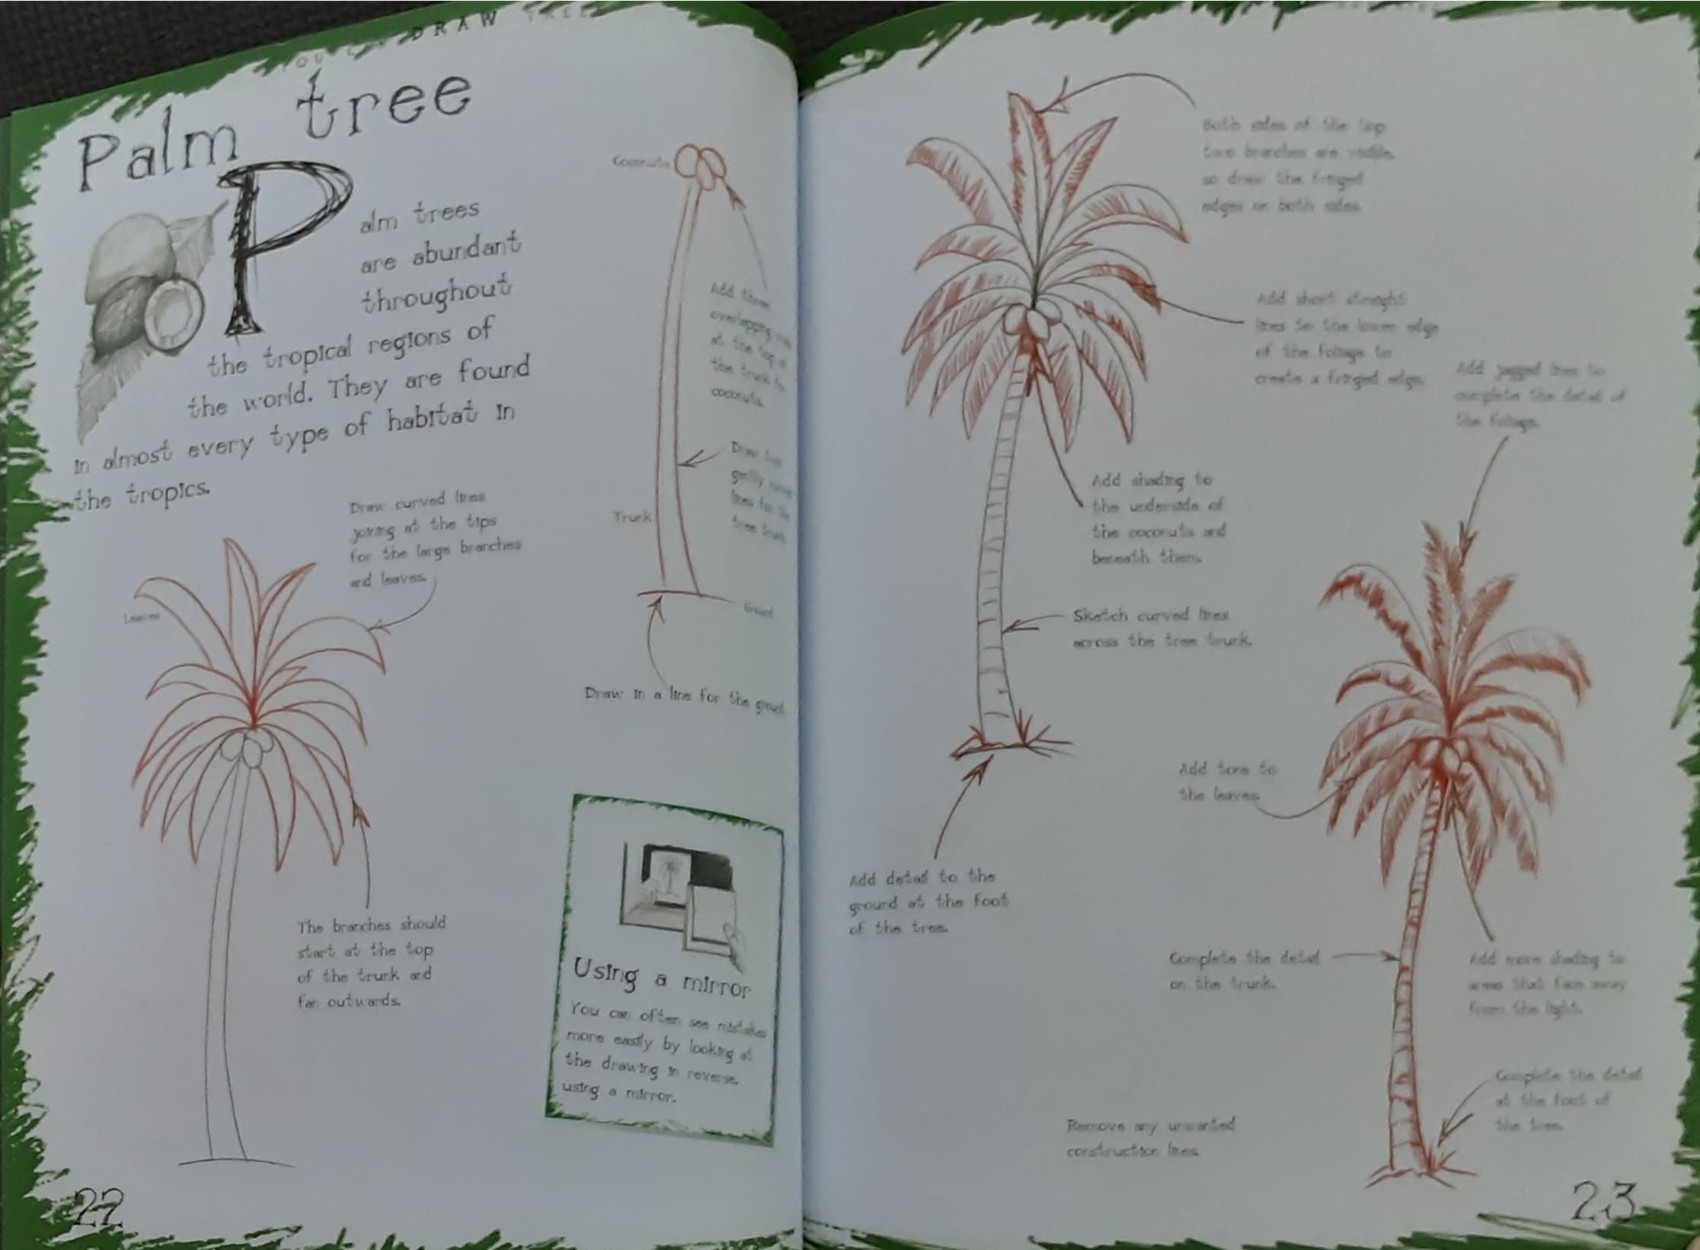 DRAW
Palm tree
Palm trees
are abundant
throughout
the tropical regions of
the world. They are found
in almost every type of habitat in
the tropics.
Coconuts
Add three
overlapping
at the top of
the trunk
coconuts.
Draw
gently
lines for the
tree trunk
Trunk
Ground
Draw in a line for the ground
Draw curved lines
joining at the tips
for the large branches
and leaves.
Leaves
The branches should
start at the top
of the trunk and
fan outwards.
Using a mirror
You can often see mistakes
more easily by looking at
the drawing in reverse,
using a mirror.
22
Both sides of the top
two branches are visible,
so draw the fringed
edges on both sides.
Add short straight
lines to the lower edge
of the foliage to
create a fringed edge.
Add jagged lines to
complete the detail of
the foliage.
Add shading to
the underside of
the coconuts and
beneath them.
Sketch curved lines
across the tree trunk.
Add tone to
the leaves.
Add detail to the
ground at the foot
of the tree.
Complete the detail
on the trunk.
Add more shading to
areas that face away
from the light.
Complete the detail
at the foot of
the tree.
Remove any unwanted
construction lines.
23